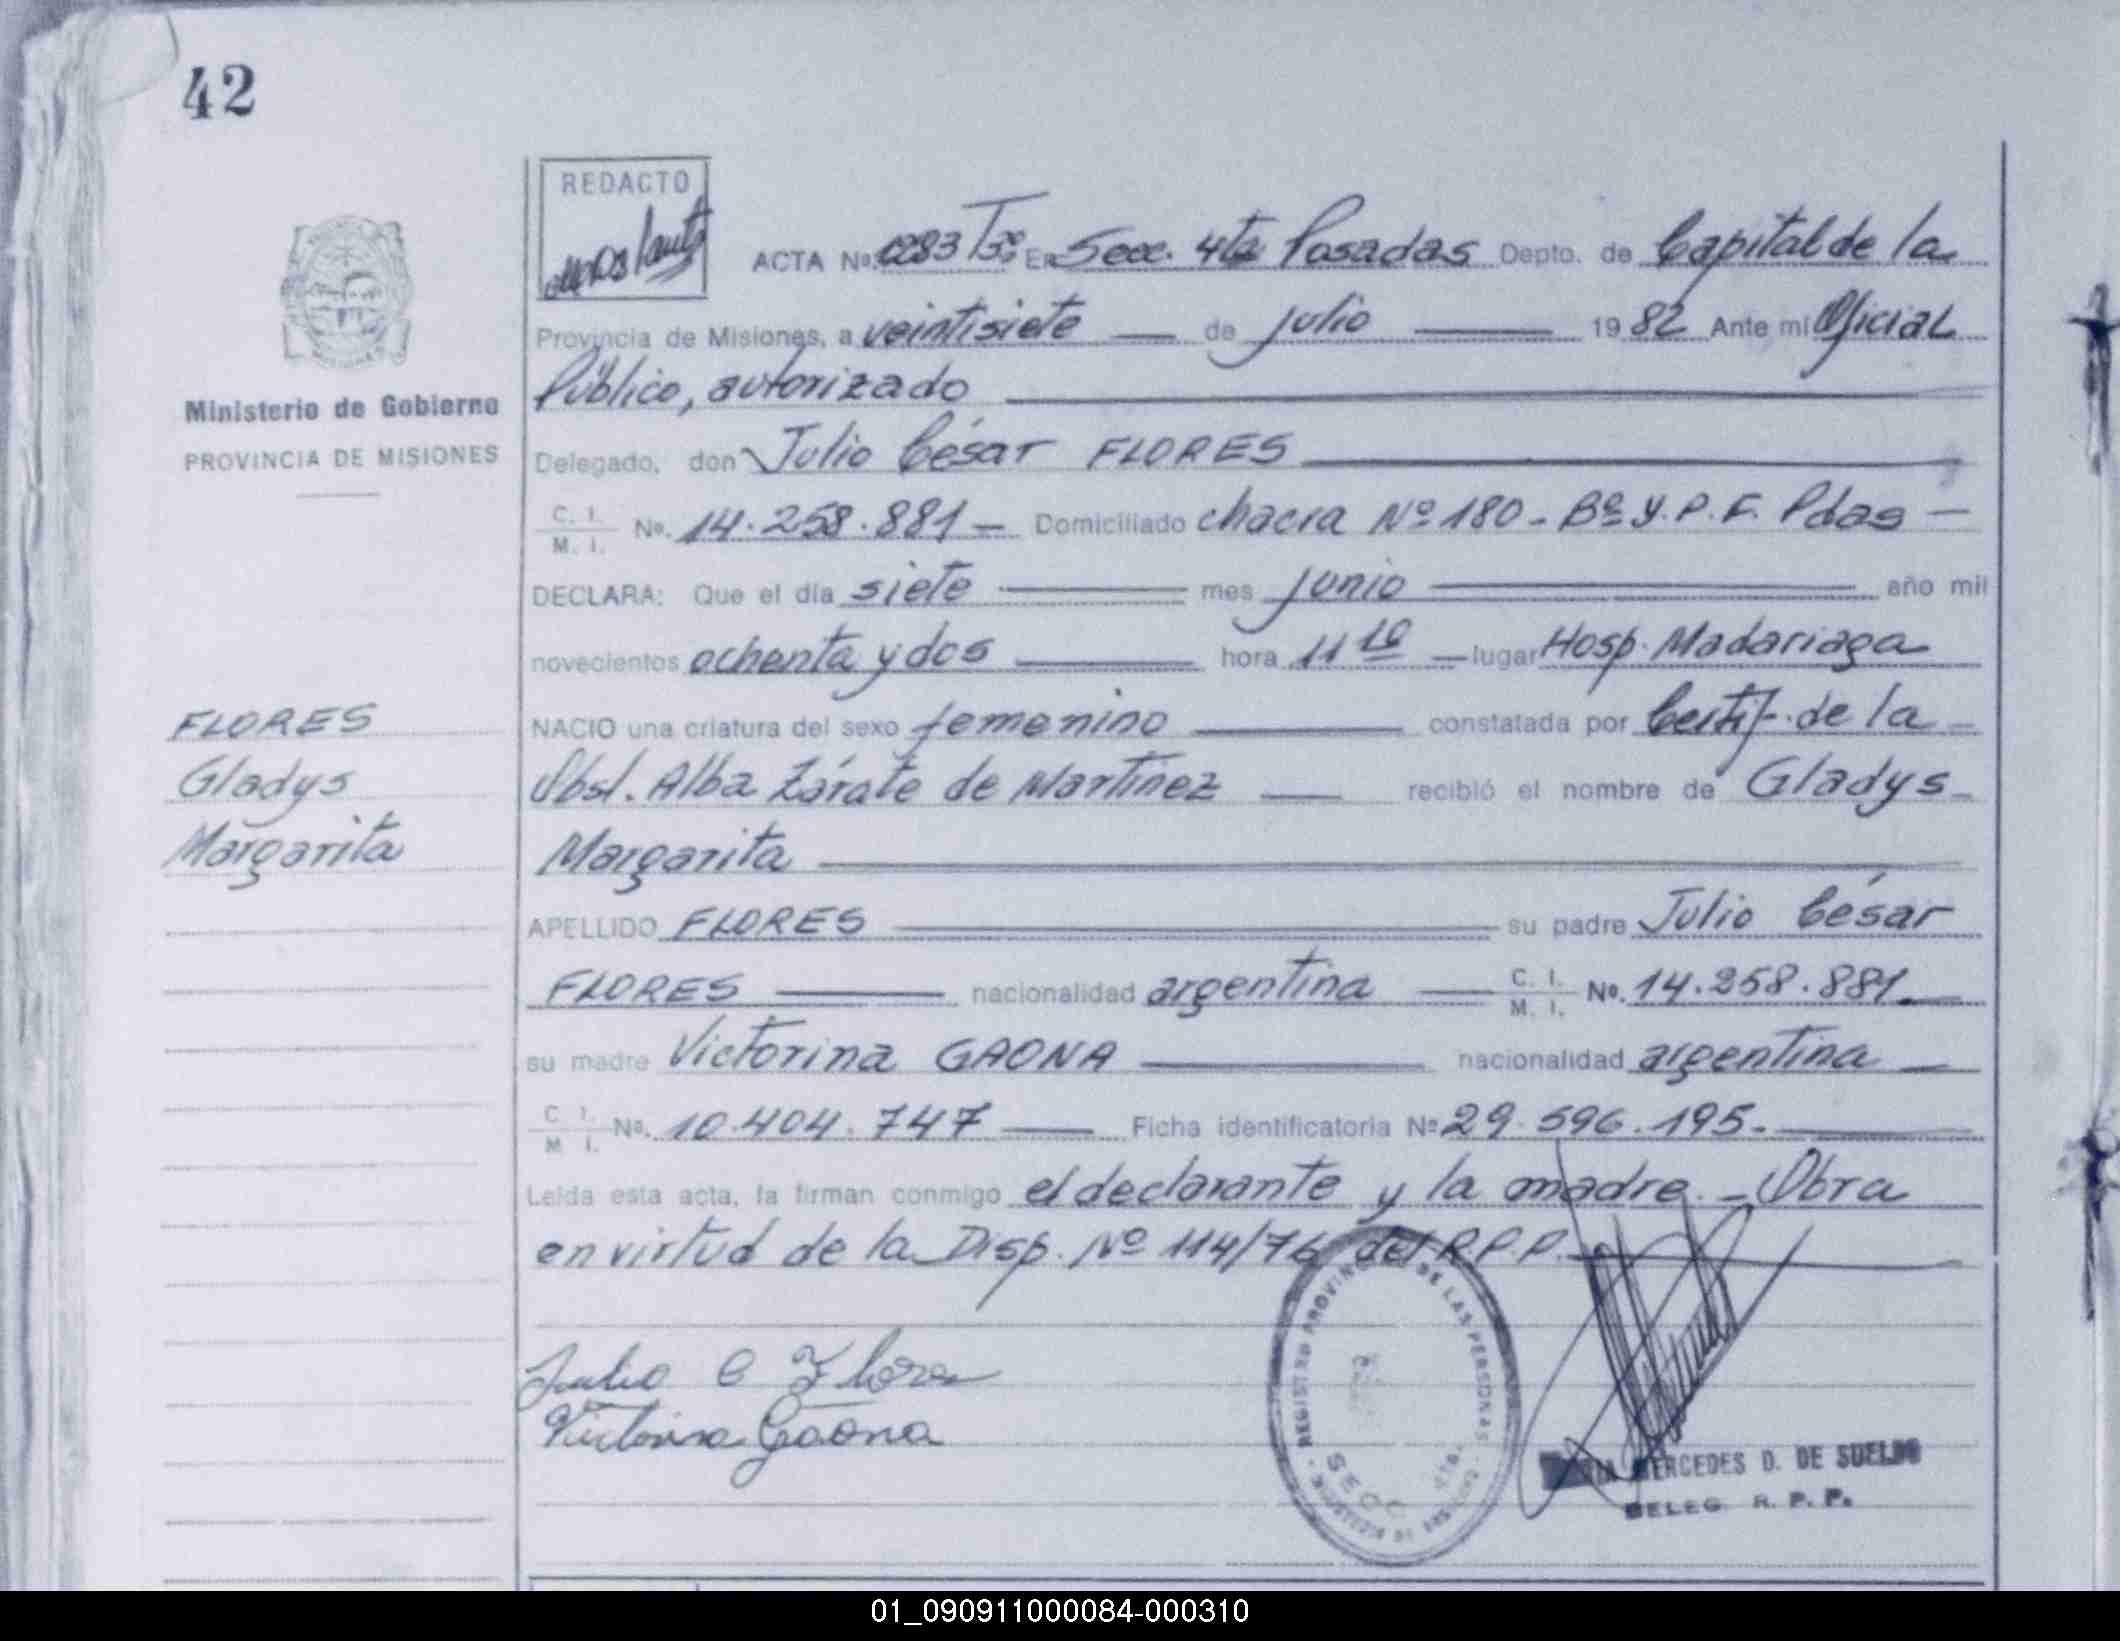 42
REDACTO
ACTA Nº. 0283 Tº 3º En Secc. 4ta Posadas Depto. de Capital de la
Provincia de Misiones, a veintisiete de julio 1982 Ante mi Oficial
Ministerio de Gobierno
Público, autorizado
PROVINCIA DE MISIONES
Delegado, don Julio César FLORES
C. I.
M. I. Nº. 14.258.881 — Domiciliado chacra Nº 180 - Bº Y.P.F. Pdas —
DECLARA: Que el día siete mes junio año mil
novecientos ochenta y dos hora 11 10 — lugar Hosp. Madariaga
FLORES
NACIO una criatura del sexo femenino constatada por Certif. de la —
Gladys
Obst. Alba Zárate de Martínez — recibió el nombre de Gladys —
Margarita
Margarita
APELLIDO FLORES su padre Julio César
FLORES nacionalidad argentina — C. I.
M. I. Nº. 14.258.881. —
su madre Victorina GAONA nacionalidad argentina —
C. I.
M I. Nº. 10.404.747 — Ficha identificatoria Nº 29.596.195. —
Leída esta acta, la firman conmigo el declarante y la madre. - Obra
en virtud de la Disp. Nº 114/76 del R.P.P.
Julio C Flores
Victorina Gaona
REGISTRO PROVINCIAL DE LAS PERSONAS
SECC 4TA.
MERCEDES D. DE SUELDO
DELEG. R. P. P.
01_090911000084-000310